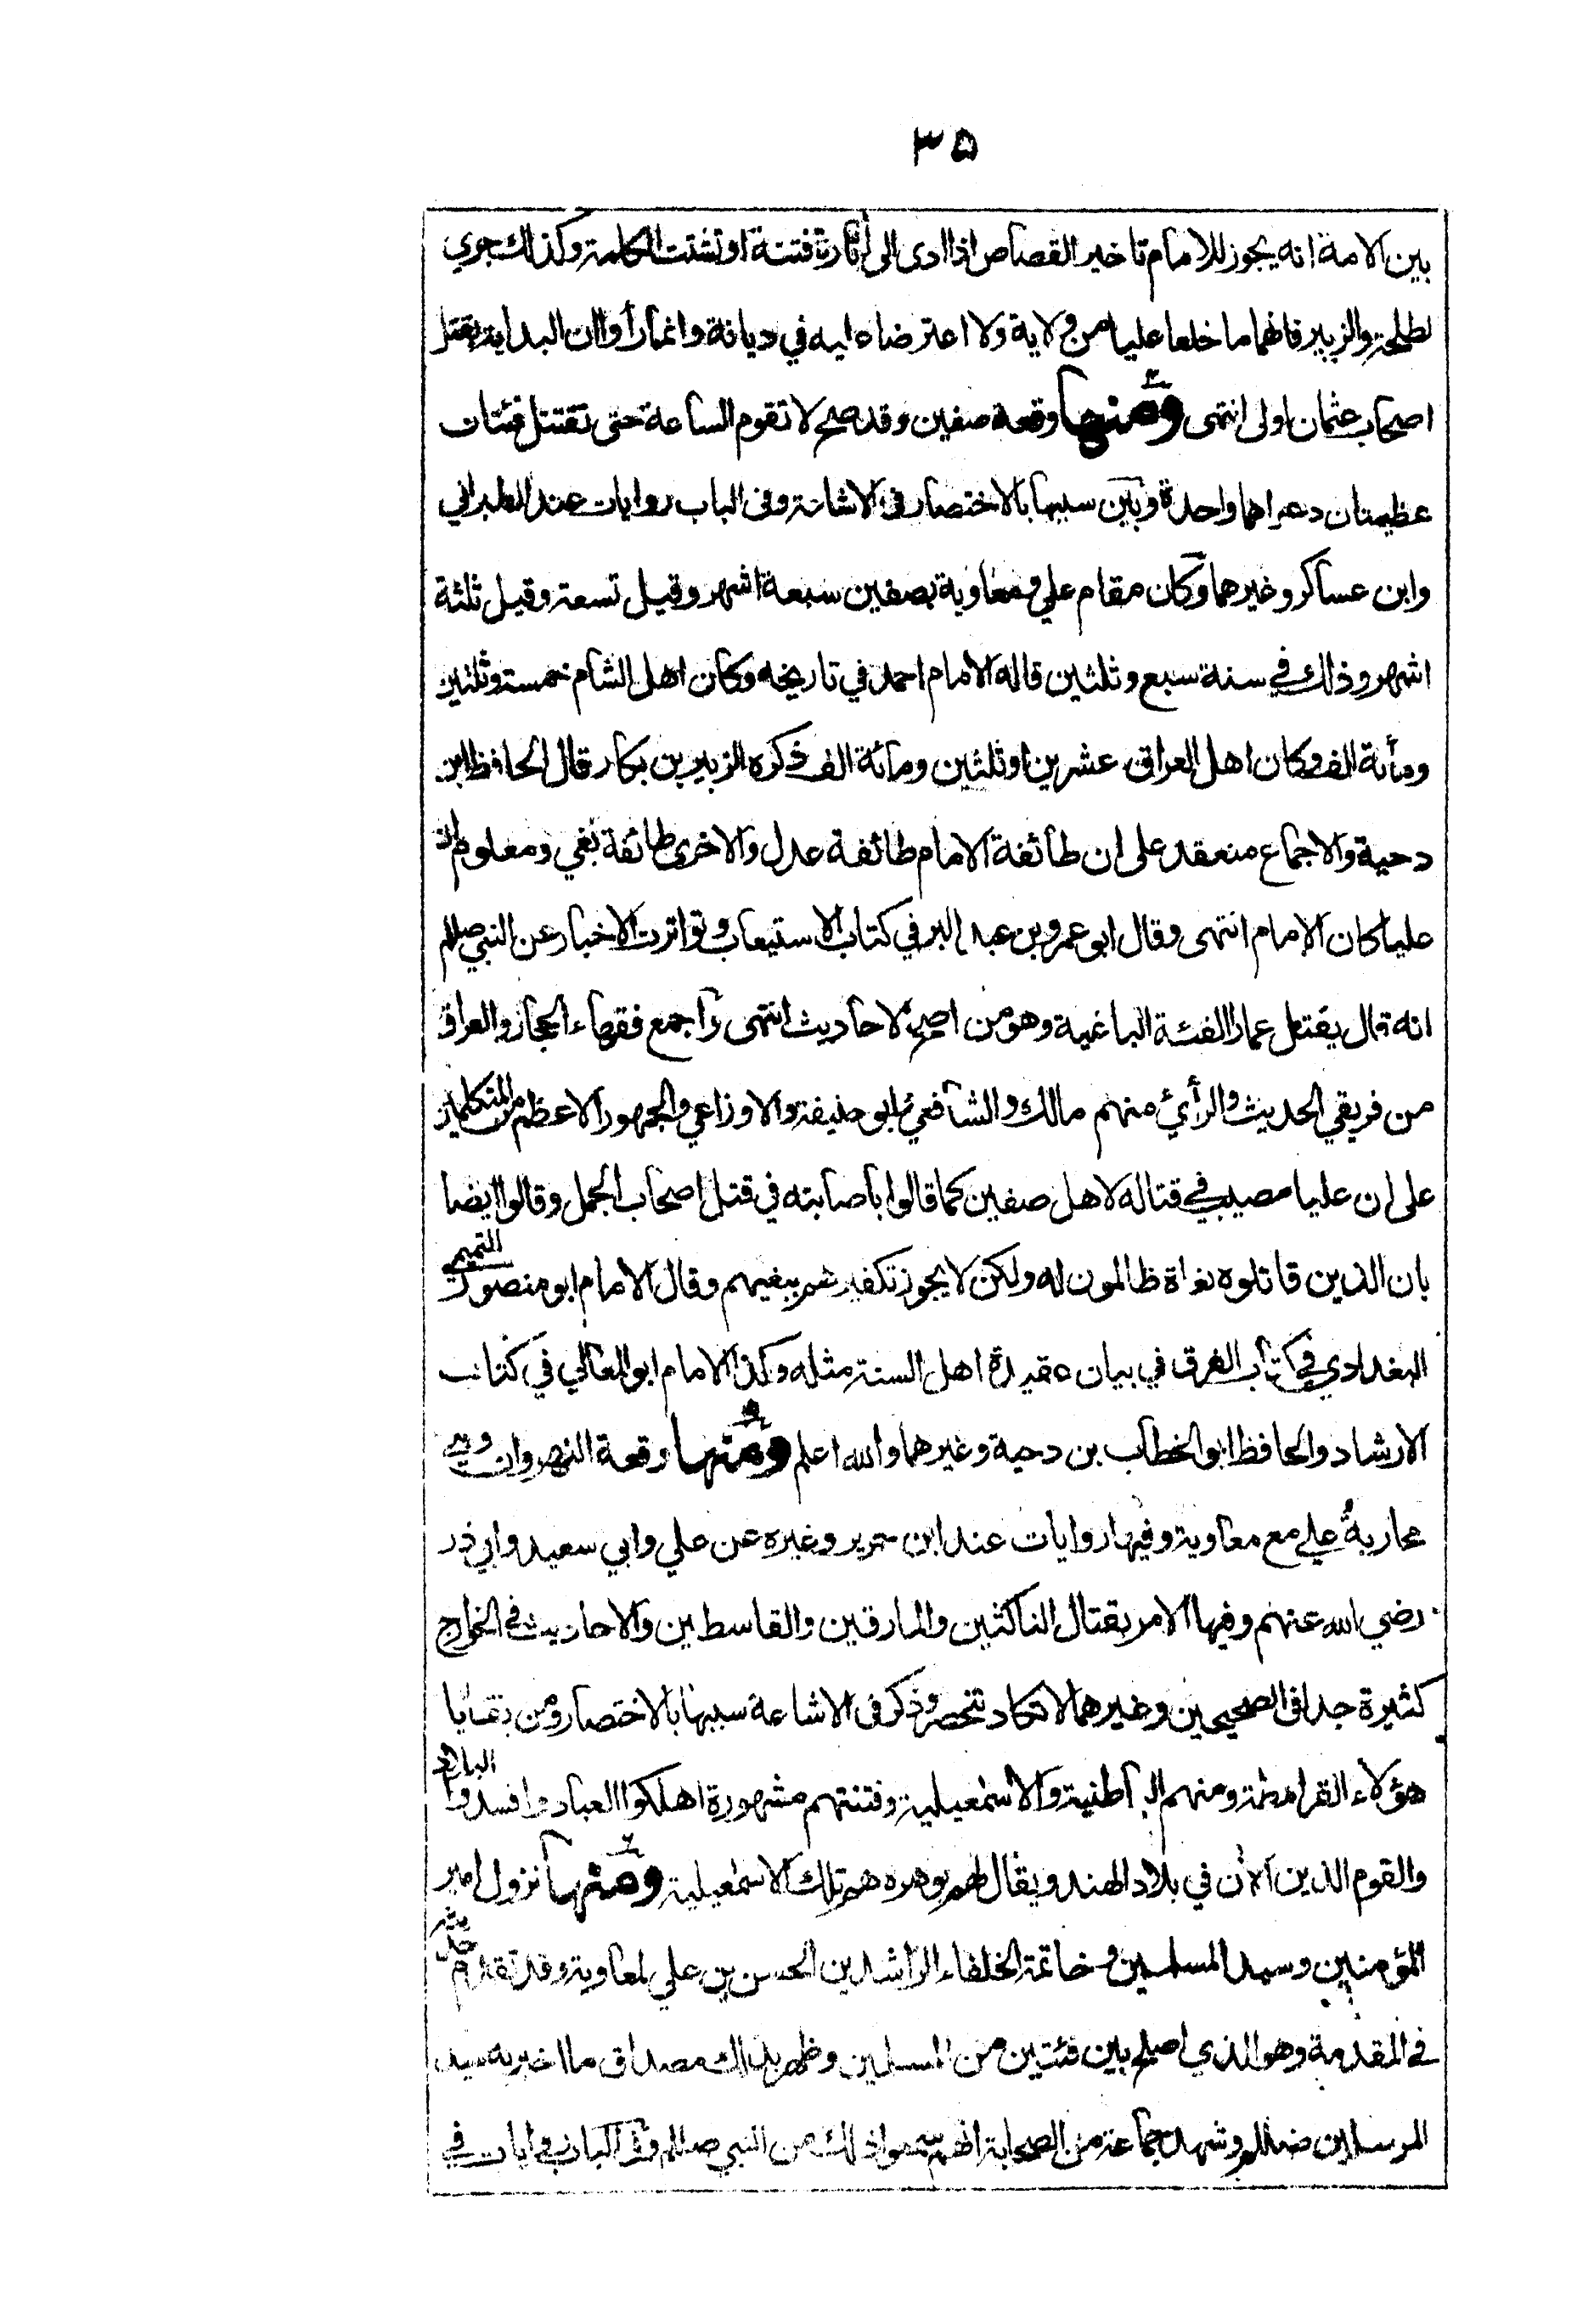 ٣٥
بين الامة انه يجوز للامام تاخير القصاص اذا ادى الى اثارة فتنة او تشتت الكلمة وكذلك جرى
لطلحة والزبير فانهما ما خلعا عليا من ولاية ولا اعترضا عليه في ديانة وانما رأوا ان البداية بقتل
اصحاب عثمان اولى انتهى ومنها وقعة صفين وقد صح لا تقوم الساعة حتى تقتتل فئتان
عظيمتان دعواهما واحدة وبين سببها بالاختصار في الاشاعة وفى الباب روايات عند الطبراني
وابن عساكر وغيرهما وكان مقام علي ومعاوية بصفين سبعة اشهر وقيل تسعة وقيل ثلثة
اشهر وذلك في سنة سبع وثلثين قاله الامام احمد في تاريخه وكان اهل الشام خمسة وثلثين
ومأئة الف وكان اهل العراق عشرين او ثلثين ومائة الف ذكره الزبير بن بكار قال الحافظ ابن
دحية والاجماع منعقد على ان طائفة الامام طائفة عدل والاخرى طائفة بغي ومعلوم ان
عليا كان الامام انتهى وقال ابو عمرو بن عبد البر في كتاب الاستيعاب وتواترت الاخبار عن النبي صللم
انه قال يقتل عمار الفئة الباغية وهو من اصح الاحاديث انتهى واجمع فقهاء الحجاز والعراق
من فريقي الحديث والرأي منهم مالك والشافعي وابو حنيفة والاوزاعي والجمهور الاعظم من المتكلمين
على ان عليا مصيب في قتاله لاهل صفين كما قالوا باصابته في قتل اصحاب الجمل وقالوا ايضا
بان الذين قاتلوه بغاة ظالمون له ولكن لا يجوز تكفيرهم ببغيهم وقال الامام ابو منصور التميمي
البغدادي في كتاب الفرق في بيان عقيدة اهل السنة مثله وكذا الامام ابو المعالي في كتاب
الارشاد والحافظ ابو الخطاب بن دحية وغيرهما والله اعلم ومنها وقعة النهروان وهي
محاربة علي مع معاوية وفيها روايات عند ابن جرير وغيره عن علي وابي سعيد وابي ذر
رضي الله عنهم وفيها الامر بقتال الناكثين والمارقين والقاسطين والاحاديث في الخوارج
كثيرة جدا في الصحيحين وغيرهما لا تكاد تنحصر وذكر في الاشاعة سببها بالاختصار ومن بقايا
هؤلاء القرامطة ومنهم الباطنية والاسمعيلية وفتنتهم مشهورة اهلكوا العباد وافسدوا البلاد
والقوم الذين الان في بلاد الهند ويقال لهم بوهره هم تلك الاسمعيلية ومنها نزول امير
المؤمنين وسيد المسلمين وخاتمة الخلفاء الراشدين الحسن بن علي لمعاوية وقد تقدم حديثه
في المقدمة وهو الذي اصلح بين فئتين من المسلمين وظهر بذلك مصداق ما اخبر به سيد
المرسلين صللم وشهد جماعة من الصحابة انهم سمعوا ذلك من النبي صللم وفي الباب روايات في